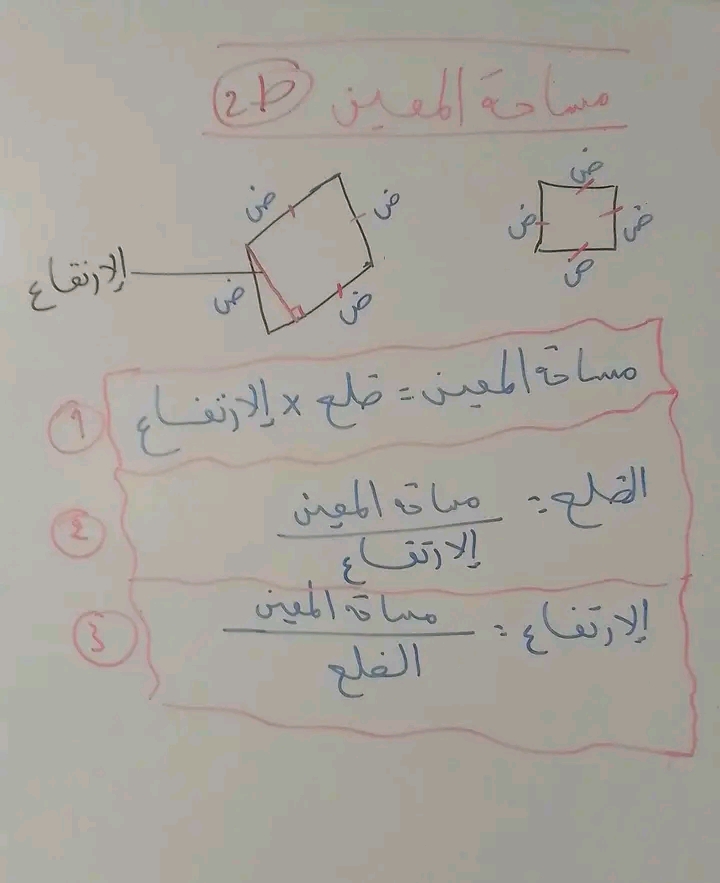 مساحة المعين ط2
ض
ض
ض
ض
ض
ض
ض
ض
الارتفاع
مساحة المعين = ضلع × الارتفاع
الضلع = مساحة المعين
الارتفاع
الارتفاع = مساحة المعين
الضلع